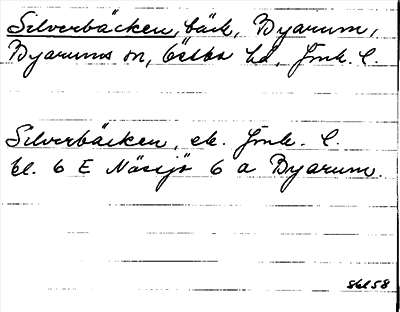 Silverbäcken, bäck, Byarum,
Byarums sn, Östbo hd, Jmk. l.
Silverbäcken, ek. Jönk. l.
bl. 6 E Nässjö 6 a Byarum.